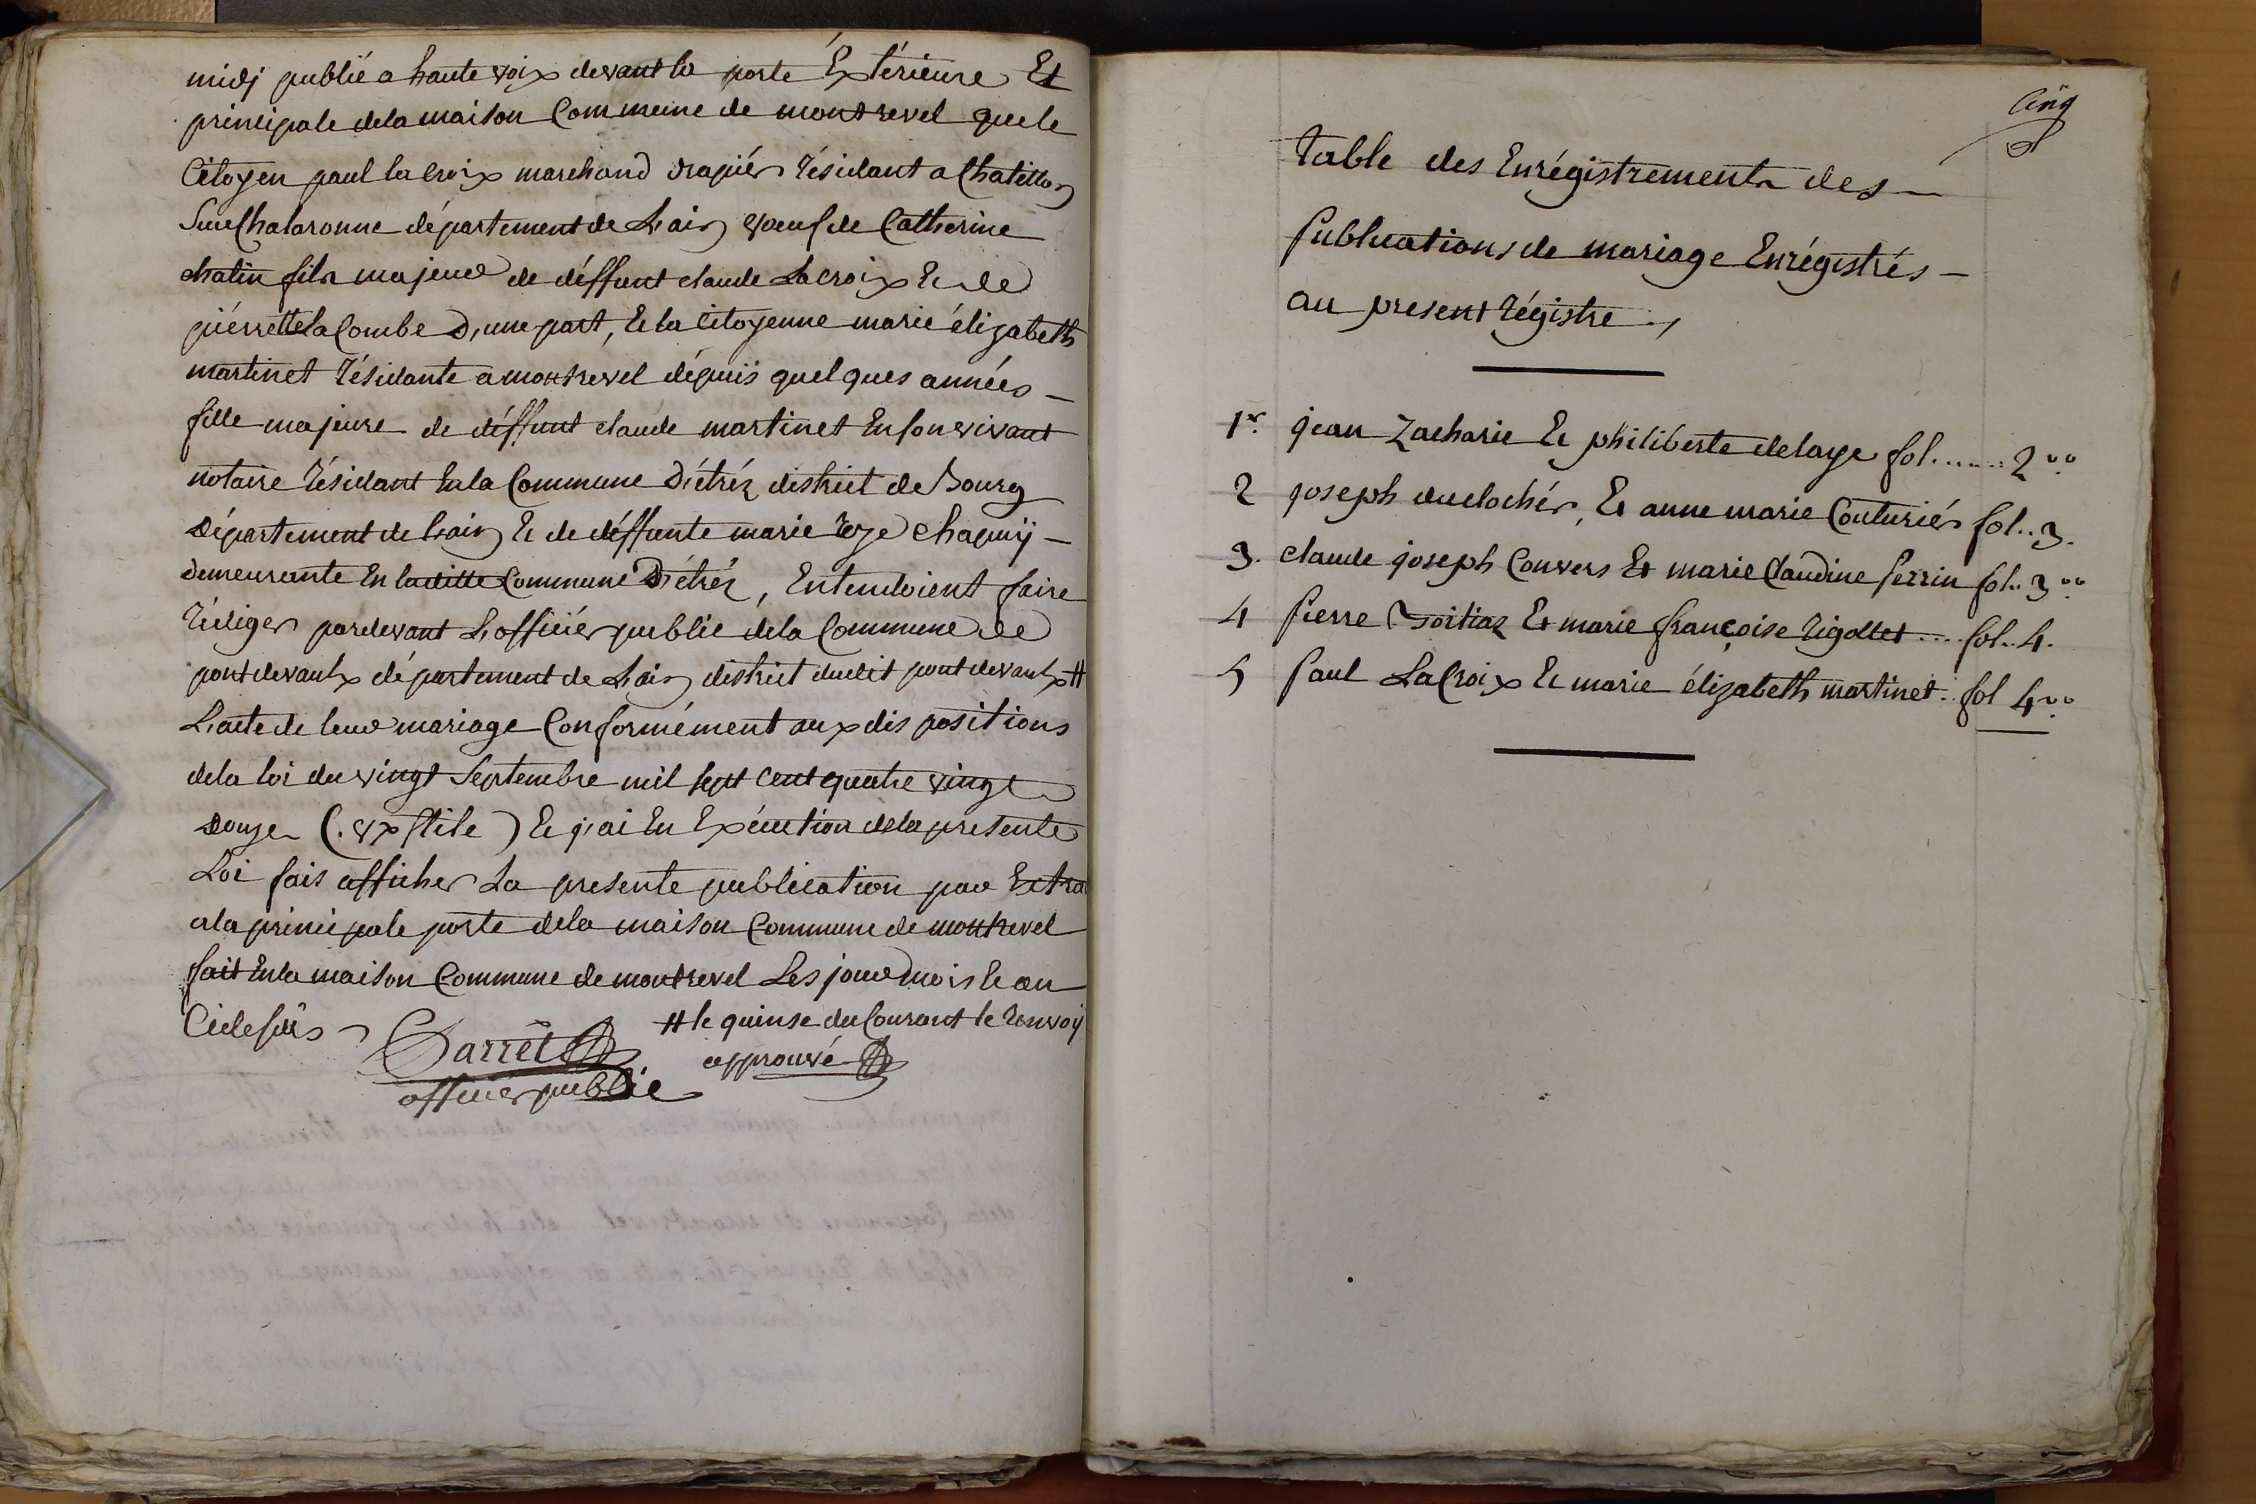 midj publié a haute voix devant la porte Éxtérieure Et
principale dela maison Commune de montrevel que le
Citoyen paul la croix marchand drapiér résidant a Chatillon
Sur Chalaronne département de L'ain veuf de Catherine
chatin fils majeur de déffunt claude Lacroix Et de
piérrétte la Combe D'une part, Et la Citoyenne marie élizabeth
martinet résidante a montrevel dépuis quelques années –
fille majeure de déffunt claude martinet En son vivant
notaire résidant En la Commune D'étréz district de Bourg
Département de L'ain Et de déffunte marie roze Chapuÿ –
demeurante En laditte Commune D'étréz, Entendoient faire
rédiger pardevant L'officiér public dela Commune de
pont devaulx département de L'ain district dudit pont devaulx #
L'acte de leur mariage Conformément aux dispositions
dela loi du vingt Septembre mil sept cent quatre vingt
Douze (. vx stile ) Et j'ai En Exécution dela presente
Loi fais afficher La presente publication par Extra
a la principale porte dela maison Commune de montrevel
fait En la maison Commune de montrevel Les jour mois Et an
Cidessus
# le quinse du Courant le renvoÿ
approuvé
Garret
officiér public
Cinq
Table des Enrégistrements des –
Publications de mariage Enrégistrés –
au present régistre.,
1er. jean Zacharie Et philiberte delaye fol....... 2 vo.
2 joseph duclochér, Et anne marie Couturiér fol.. 3.
3. claude joseph Convers Et marie Claudine Perrin fol.. 3 vo.
4 Pierre Et marie françoise rigollet .... fol.. 4.
5 Paul La Croix Et marie élizabeth martinet.. fol 4 vo.